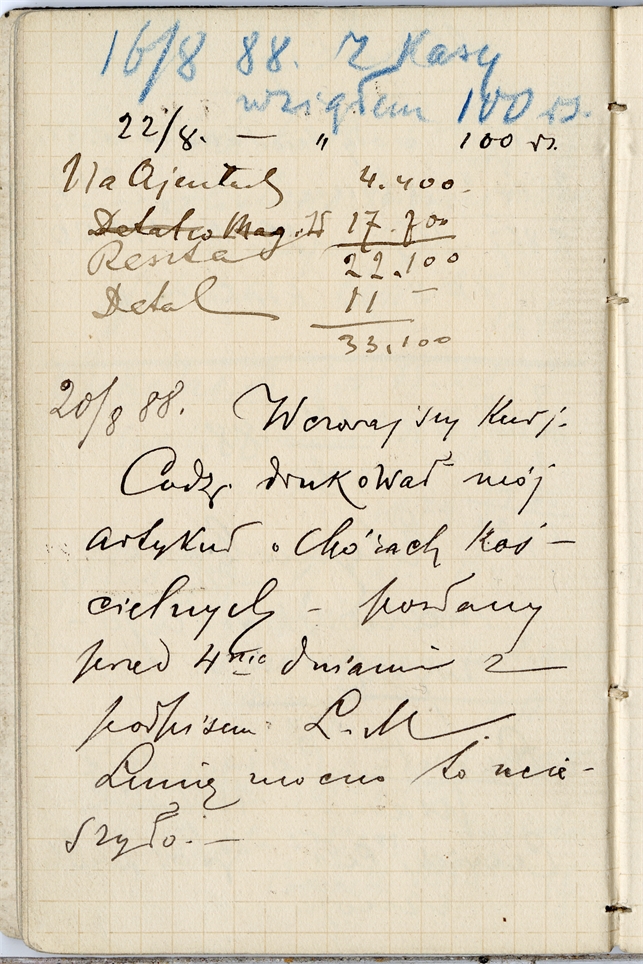 16/8 88. Z Kasy
wziąłem 100 rs.
22/8. — " 100 rs.
Na Ajentach 4.400.
Detal w Mag. 17.700
Reszta 22.100
Detal 11 —
33,100
20/8 88. Wczorajszy Kurj.
Codz. drukował mój
artykuł o chórach koś-
cielnych – posłany
przed 4ma dniami z
podpisem L. M
Lunię mocno to ucie-
szyło. —